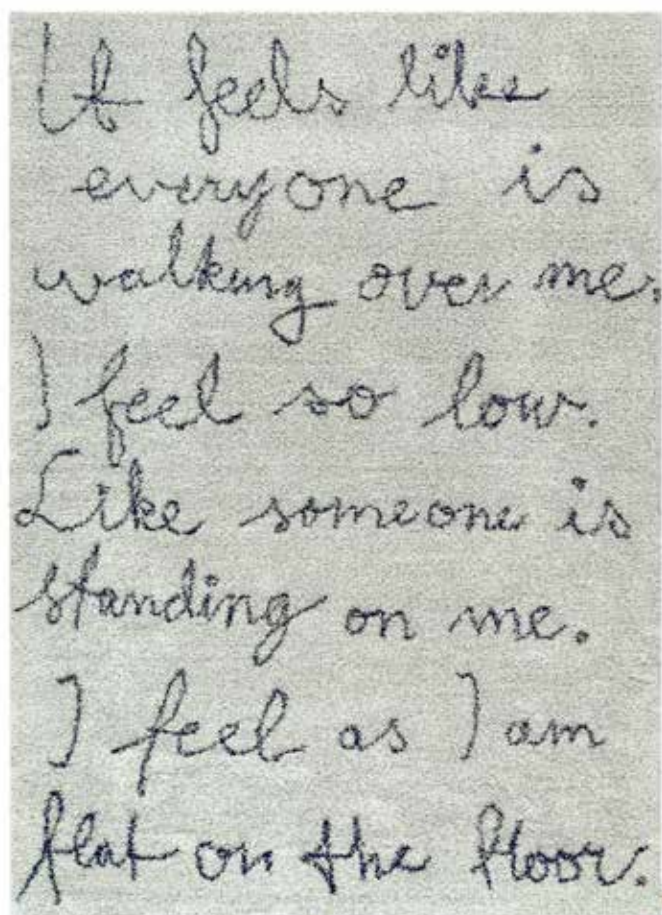 It feels like
everyone is
walking over me.
I feel so low.
Like someone is
standing on me.
I feel as I am
flat on the floor.